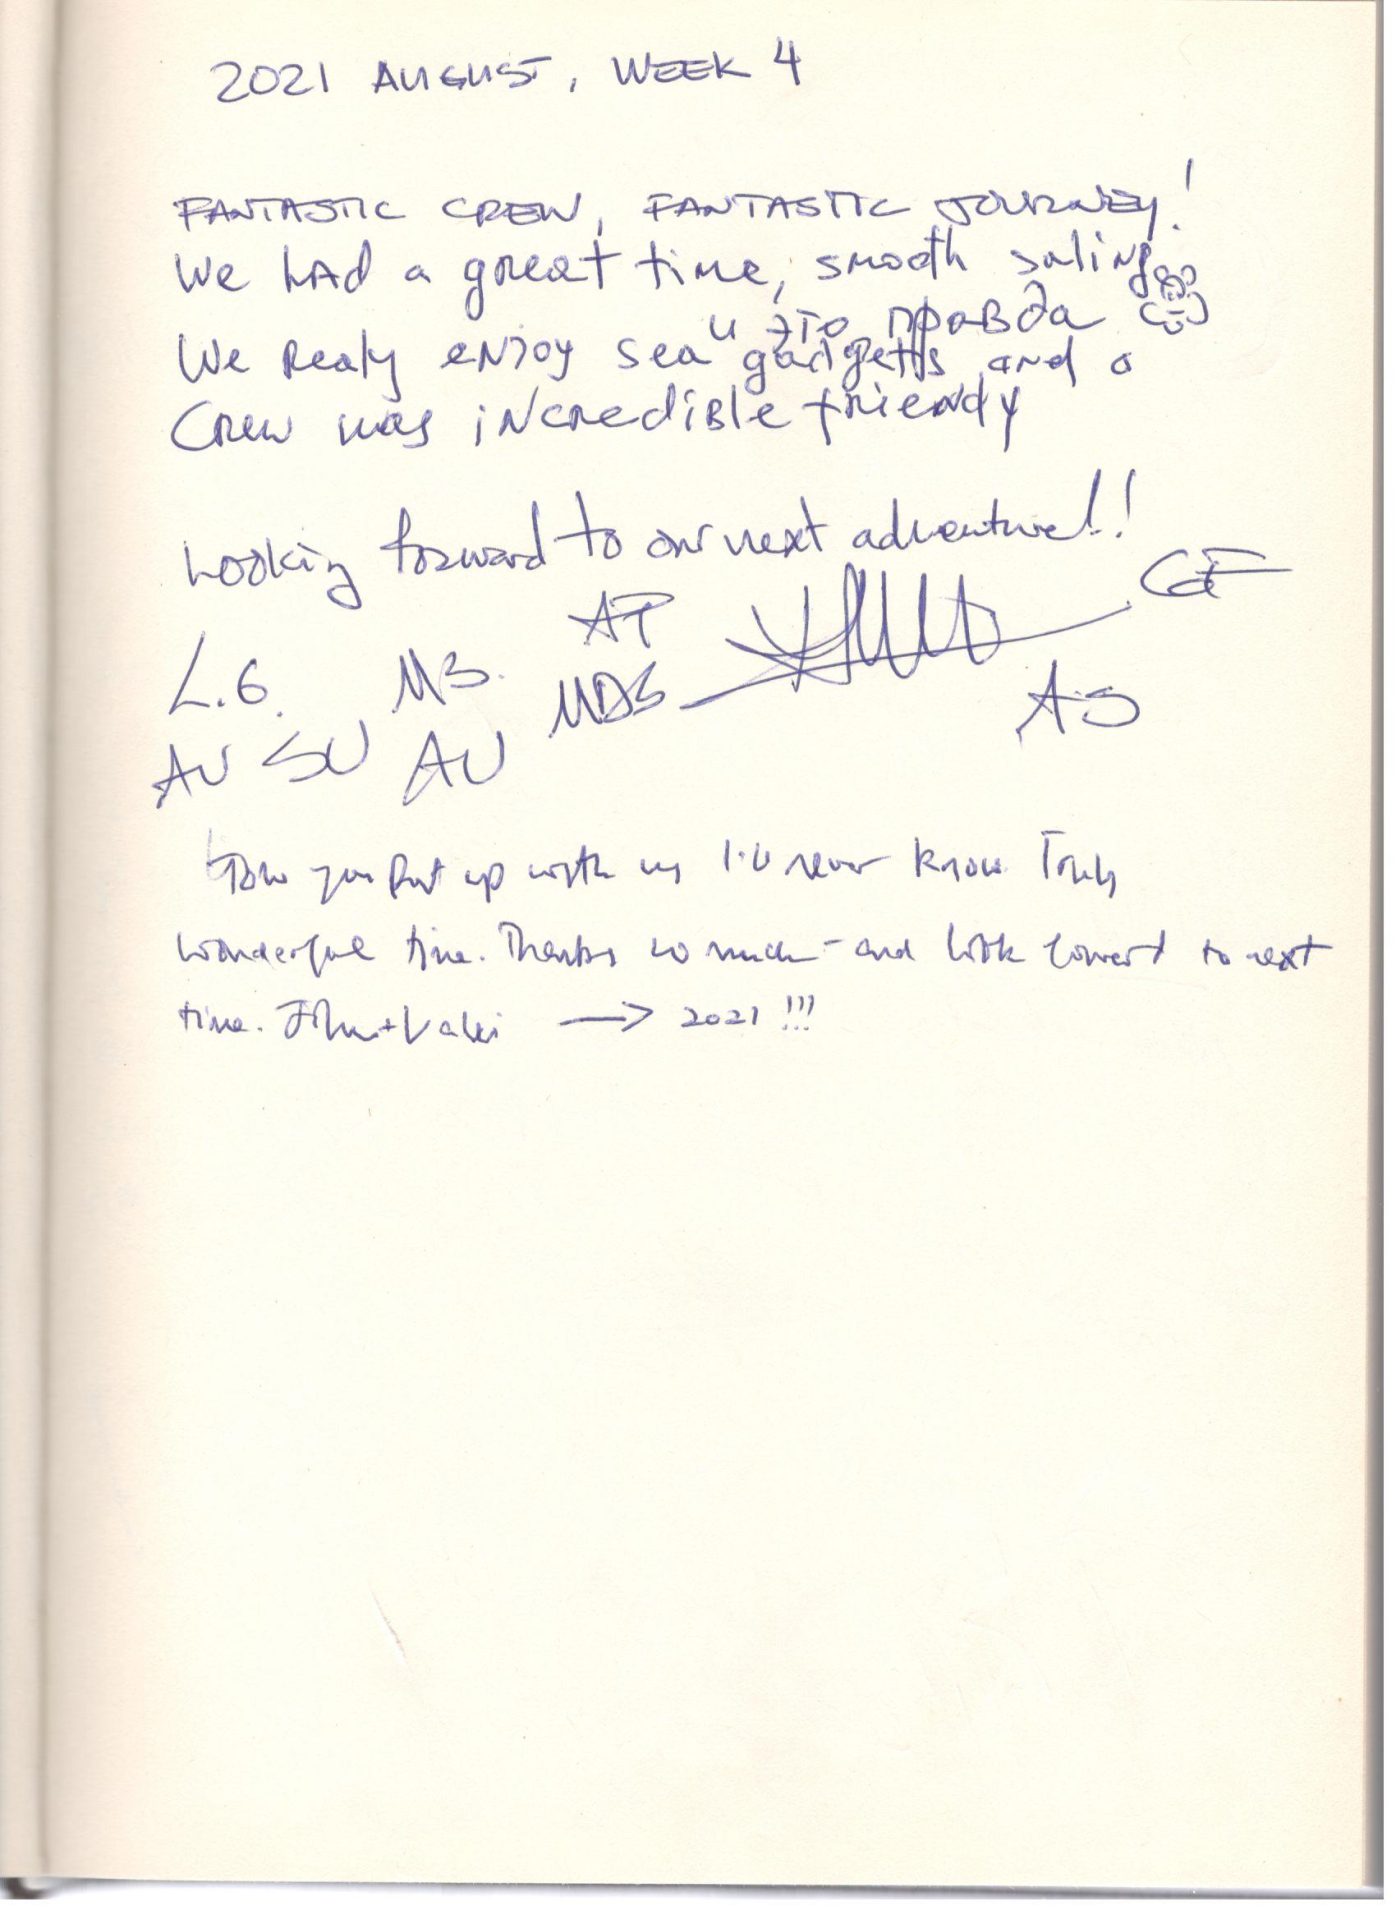 2021 AUGUST, WEEK 4
FANTASTIC CREW, FANTASTIC JOURNEY!
We HAd a great time, smooth saling
и это правда
We Realy enjoy sea gadgetts and a
Crew was incredible friendy
Looking forward to our next adventure!!
GF
AP
L.G. MB. MDS
AS
AU SU AU
How you put up with us I'll never know. Truly
wonderful time. Thanks so much - and look forward to next
time. John + → 2021 !!!